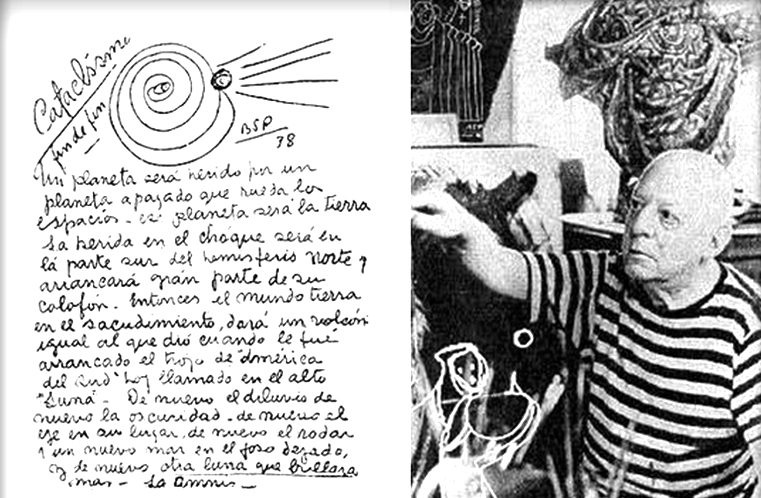 Cataclísmo
fin de fin
BSP
38
Un planeta será herido por un
planeta apagado que rueda los
espacios - ese planeta será la tierra
La herida en el choque será en
la parte sur del hemisferio norte y
arrancará gran parte de su
colofón. Entonces el mundo tierra
en el sacudimiento, dará un volcón
igual al que dió cuando le fué
arrancado el trozo de "américa
del sud" hoy llamado en el alto
"Luna" - De nuevo el diluvio de
nuevo la oscuridad - de nuevo el
eje en su lugar, de nuevo el rodar
y un nuevo mar en el foso dejado,
y de nuevo otra luna que brillara
mas -